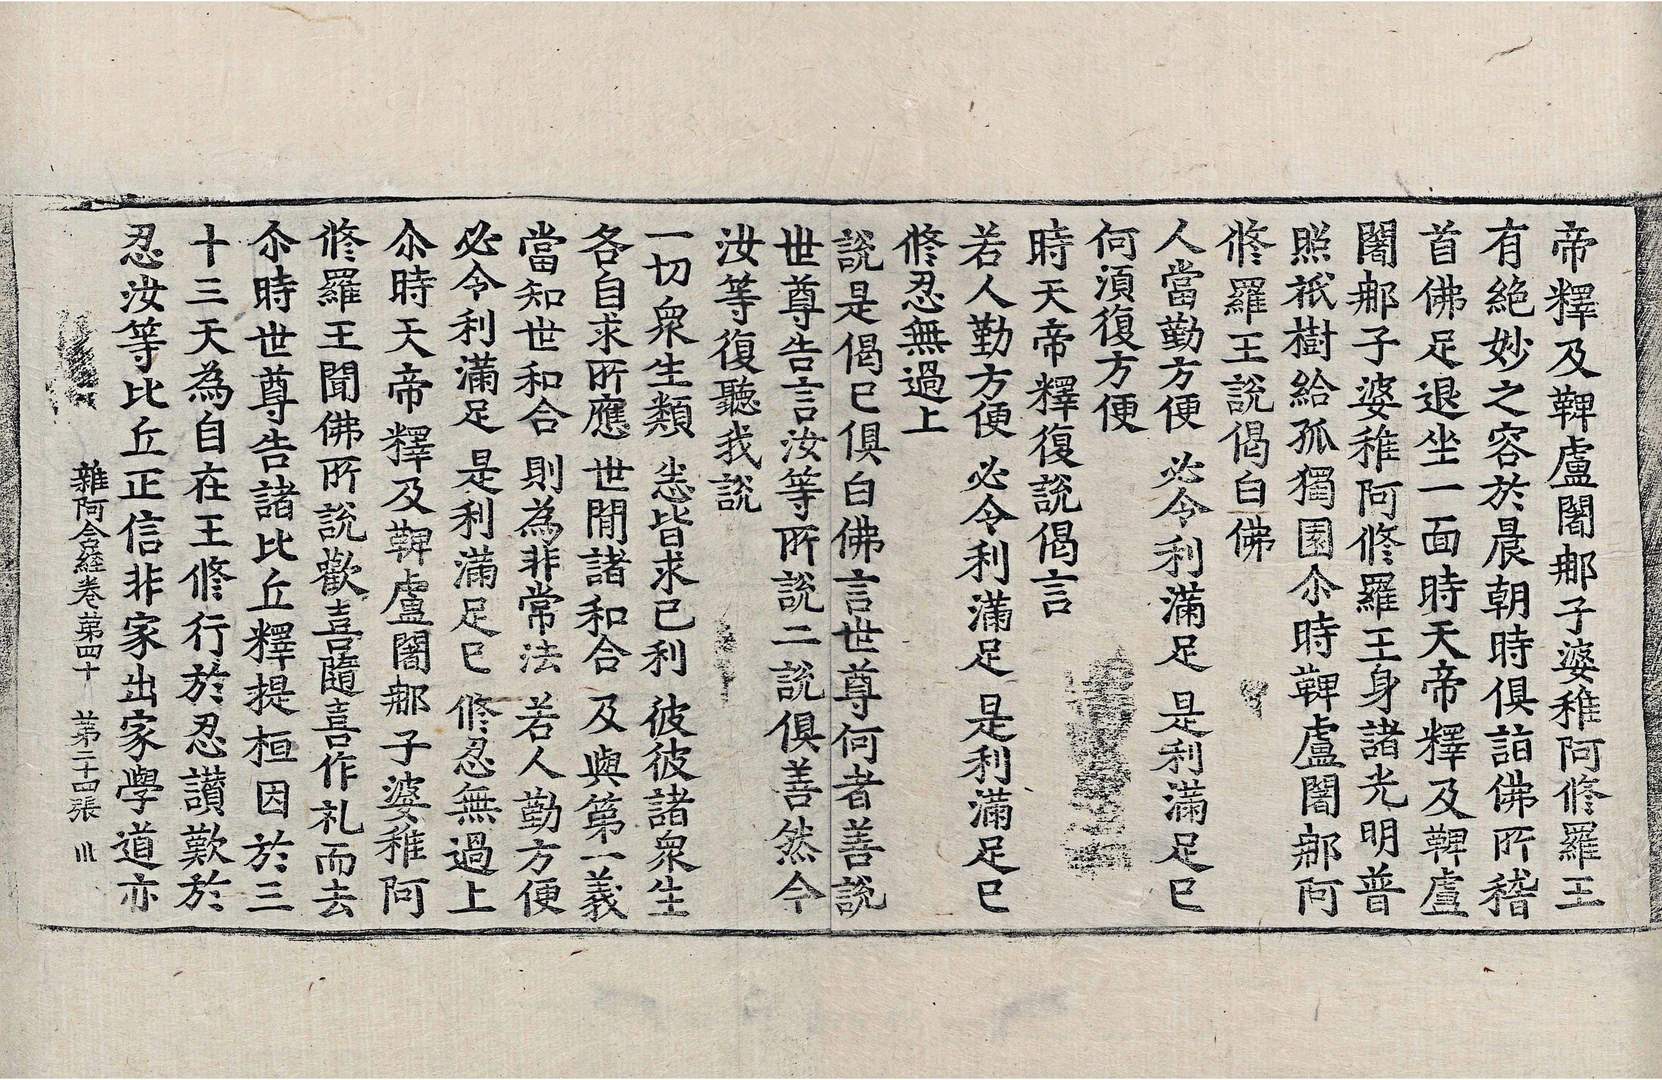 帝釋及鞞盧闍郍子婆稚阿修羅王
有絶妙之容於晨朝時俱詣佛所稽
首佛足退坐一面時天帝釋及鞞盧
闍郍子婆稚阿修羅王身諸光明普
照祇樹給孤獨園尒時鞞盧闍郍阿
修羅王說偈白佛
人當勤方便 必令利滿足 是利滿足已
何須復方便
時天帝釋復說偈言
若人勤方便 必令利滿足 是利滿足已
修忍無過上
說是偈已俱白佛言世尊何者善說
世尊告言汝等所說二說俱善然今
汝等復聽我說
一切衆生類 悉皆求己利 彼彼諸衆生
各自求所應 世閒諸和合 及與第一義
當知世和合 則為非常法 若人勤方便
必令利滿足 是利滿足已 修忍無過上
尒時天帝釋及鞞盧闍郍子婆稚阿
修羅王聞佛所說歡喜隨喜作礼而去
尒時世尊告諸比丘釋提桓因於三
十三天為自在王修行於忍讚歎於
忍汝等比丘正信非家出家學道亦
雜阿含經卷第四十 第二十四張 川